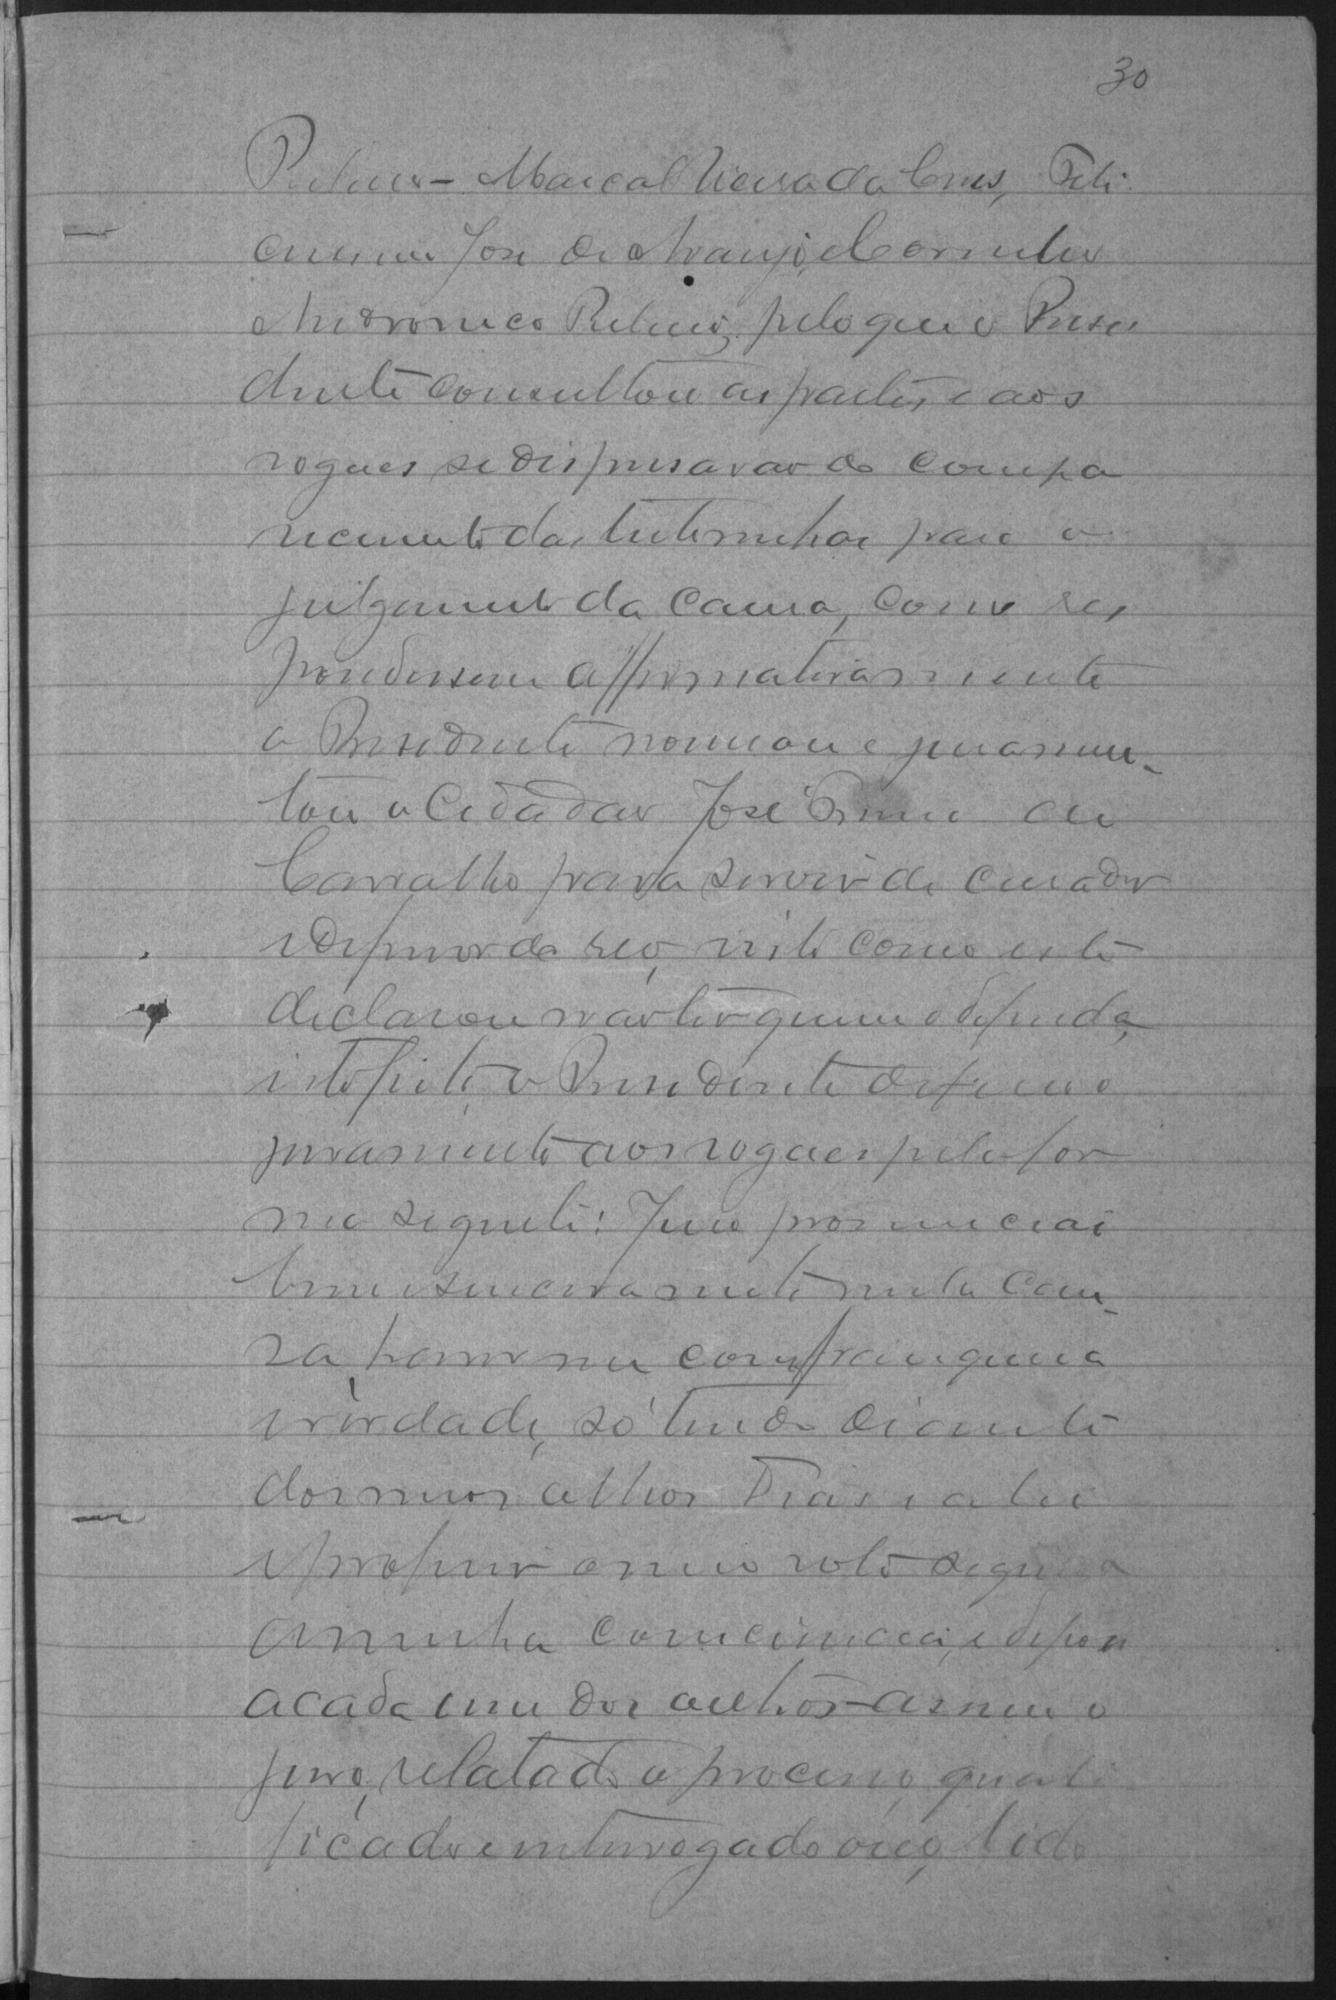 30
Ribeiro - Marcal Vieira da Cruz, Feli
cissimo Jose de Araujo, Cornelio
Andronico Ribeiro, pelo que o Presi
dente consultou as partes e aos
vogaes se dispensavão do compa
recimento das testemunhas para o
julgamento da causa, como res
pondessem affirmativamente
o Presidente nomeou e juramen-
tou o Cidadão José Bruno de
Carvalho para servir de curador
e defensor do reo, visto como este
declarou não ter quem o defenda,
isto feito, o Presidente deferio o
juramento aos vogaes pela for
ma seguinte: Juro pronunciar
bem e sinceramente nesta cau-
sa, haver me com franqueza
e verdade, só tendo diante
dos meus olhos Deus e a lei
e proferir o meu voto segundo
a minha consciencia, e depois
a cada um dos outros - assim o
juro, relatado o processo, quali
ficado e interrogado o reo, lido